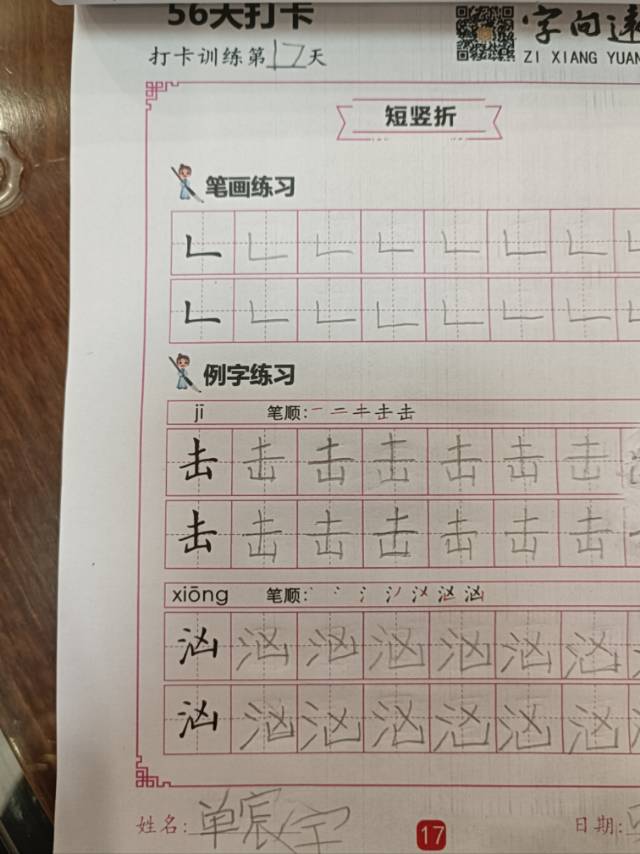 56天打卡
打卡训练第17天
字向速
ZI XIANG YUAN
短竖折
笔画练习
例字练习
jī 笔顺: 一 二 キ 击 击
击 击 击 击 击 击 击
击 击 击 击 击 击 击
xiōng 笔顺:
汹 汹 汹 汹 汹 汹 汹
汹 汹 汹 汹 汹 汹 汹
姓名: 单宸宇 17 日期: